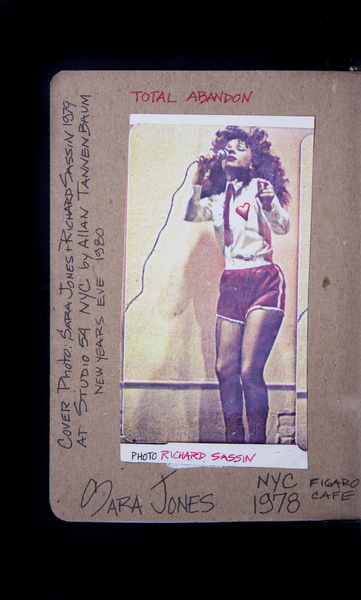 TOTAL ABANDON
COVER PHOTO: SARA JONES + RICHARD SASSIN 1979
AT STUDIO 54 NYC by ALLAN TANNENBAUM
NEW YEARS EVE 1980
PHOTO RICHARD SASSIN
SARA JONES
NYC
1978
FIGARO
CAFE